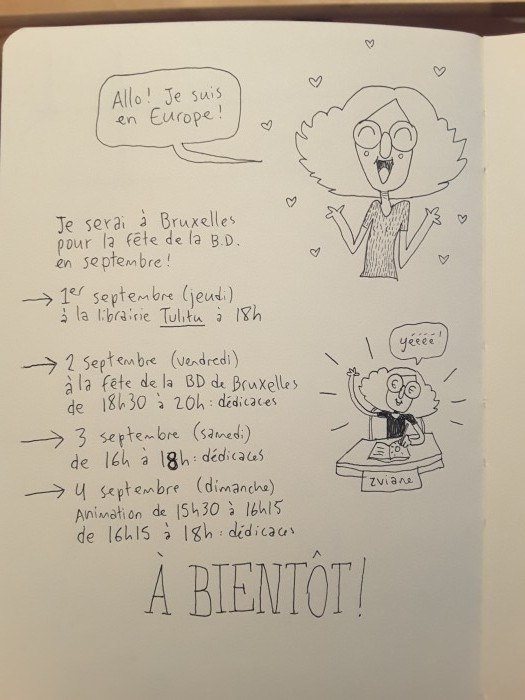 Allo! Je suis
en Europe!
Je serai à Bruxelles
pour la fête de la B.D.
en septembre!
→ 1er septembre (jeudi)
à la librairie Tulitu à 18h
→ 2 septembre (vendredi)
à la fête de la BD de Bruxelles
de 18h30 à 20h: dédicaces
→ 3 septembre (samedi)
de 16h à 18h: dédicaces
→ 4 septembre (dimanche)
Animation de 15h30 à 16h15
de 16h15 à 18h: dédicaces
yéééé!
zviane
À BIENTÔT!